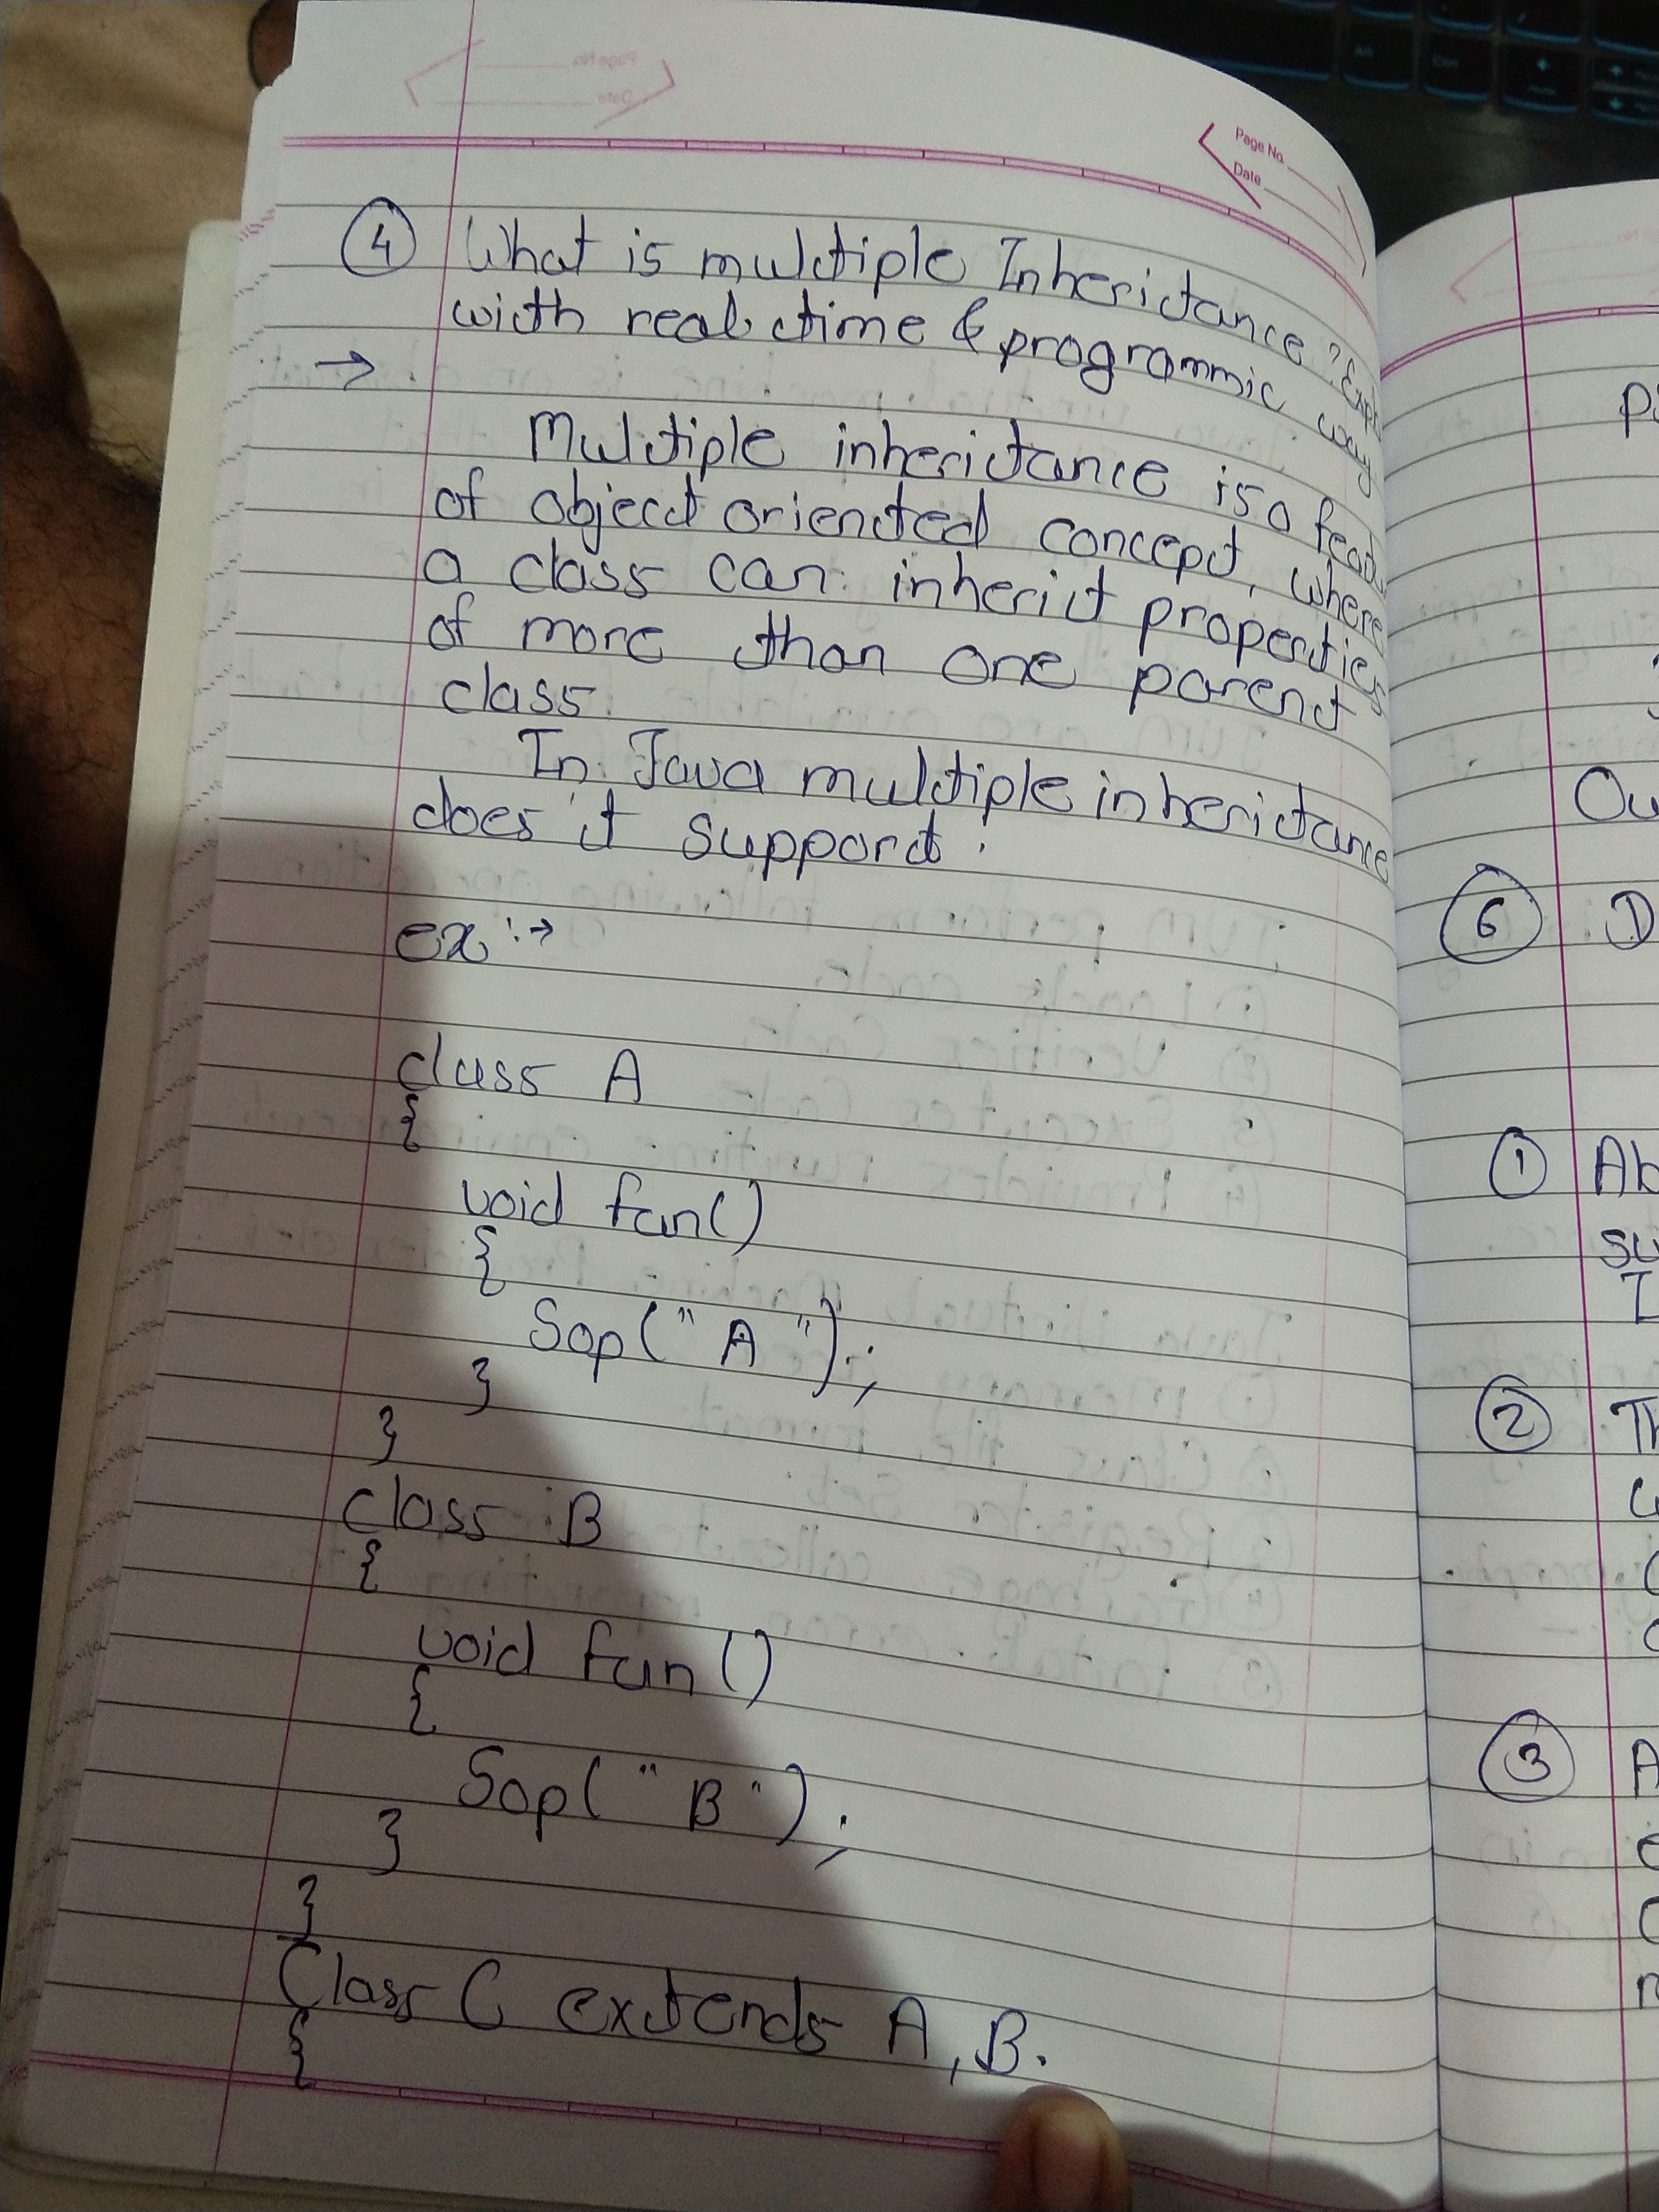 Page No.
Date
4 What is multiple Inheritance ? Exp
with real time & programmic way
→
Multiple inheritance is a featu
of object oriented concept, where
a class can inherit properties
of more than one parent
class.
In Java multiple inheritance
does'it support.
ex :→
class A
{
void fun()
{
Sop("A");
}
}
class B
{
void fun()
{
Sop("B");
}
}
Class C extends A, B.
{
Pi
Ou
6 D
1 Ab
su
I
2 Th
3 A